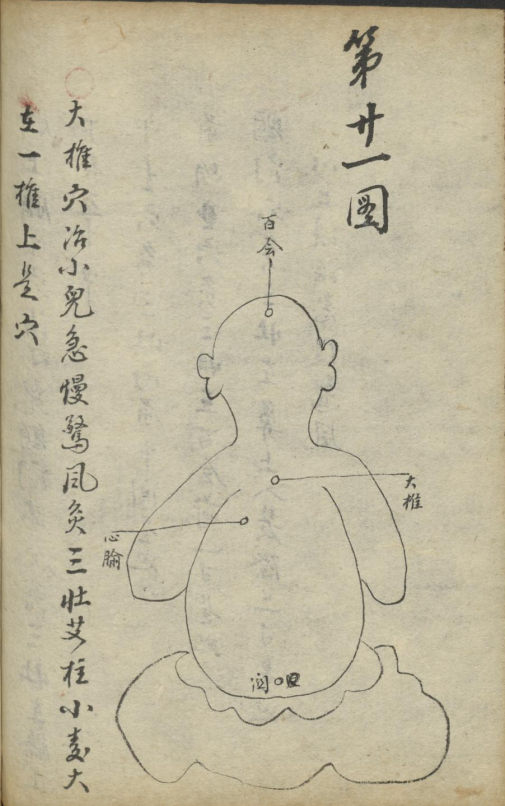 第廿一图
百会
大椎
心腧
囟
大椎穴治小兒急慢驚风灸三壮艾柱小麦大
在一椎上是穴